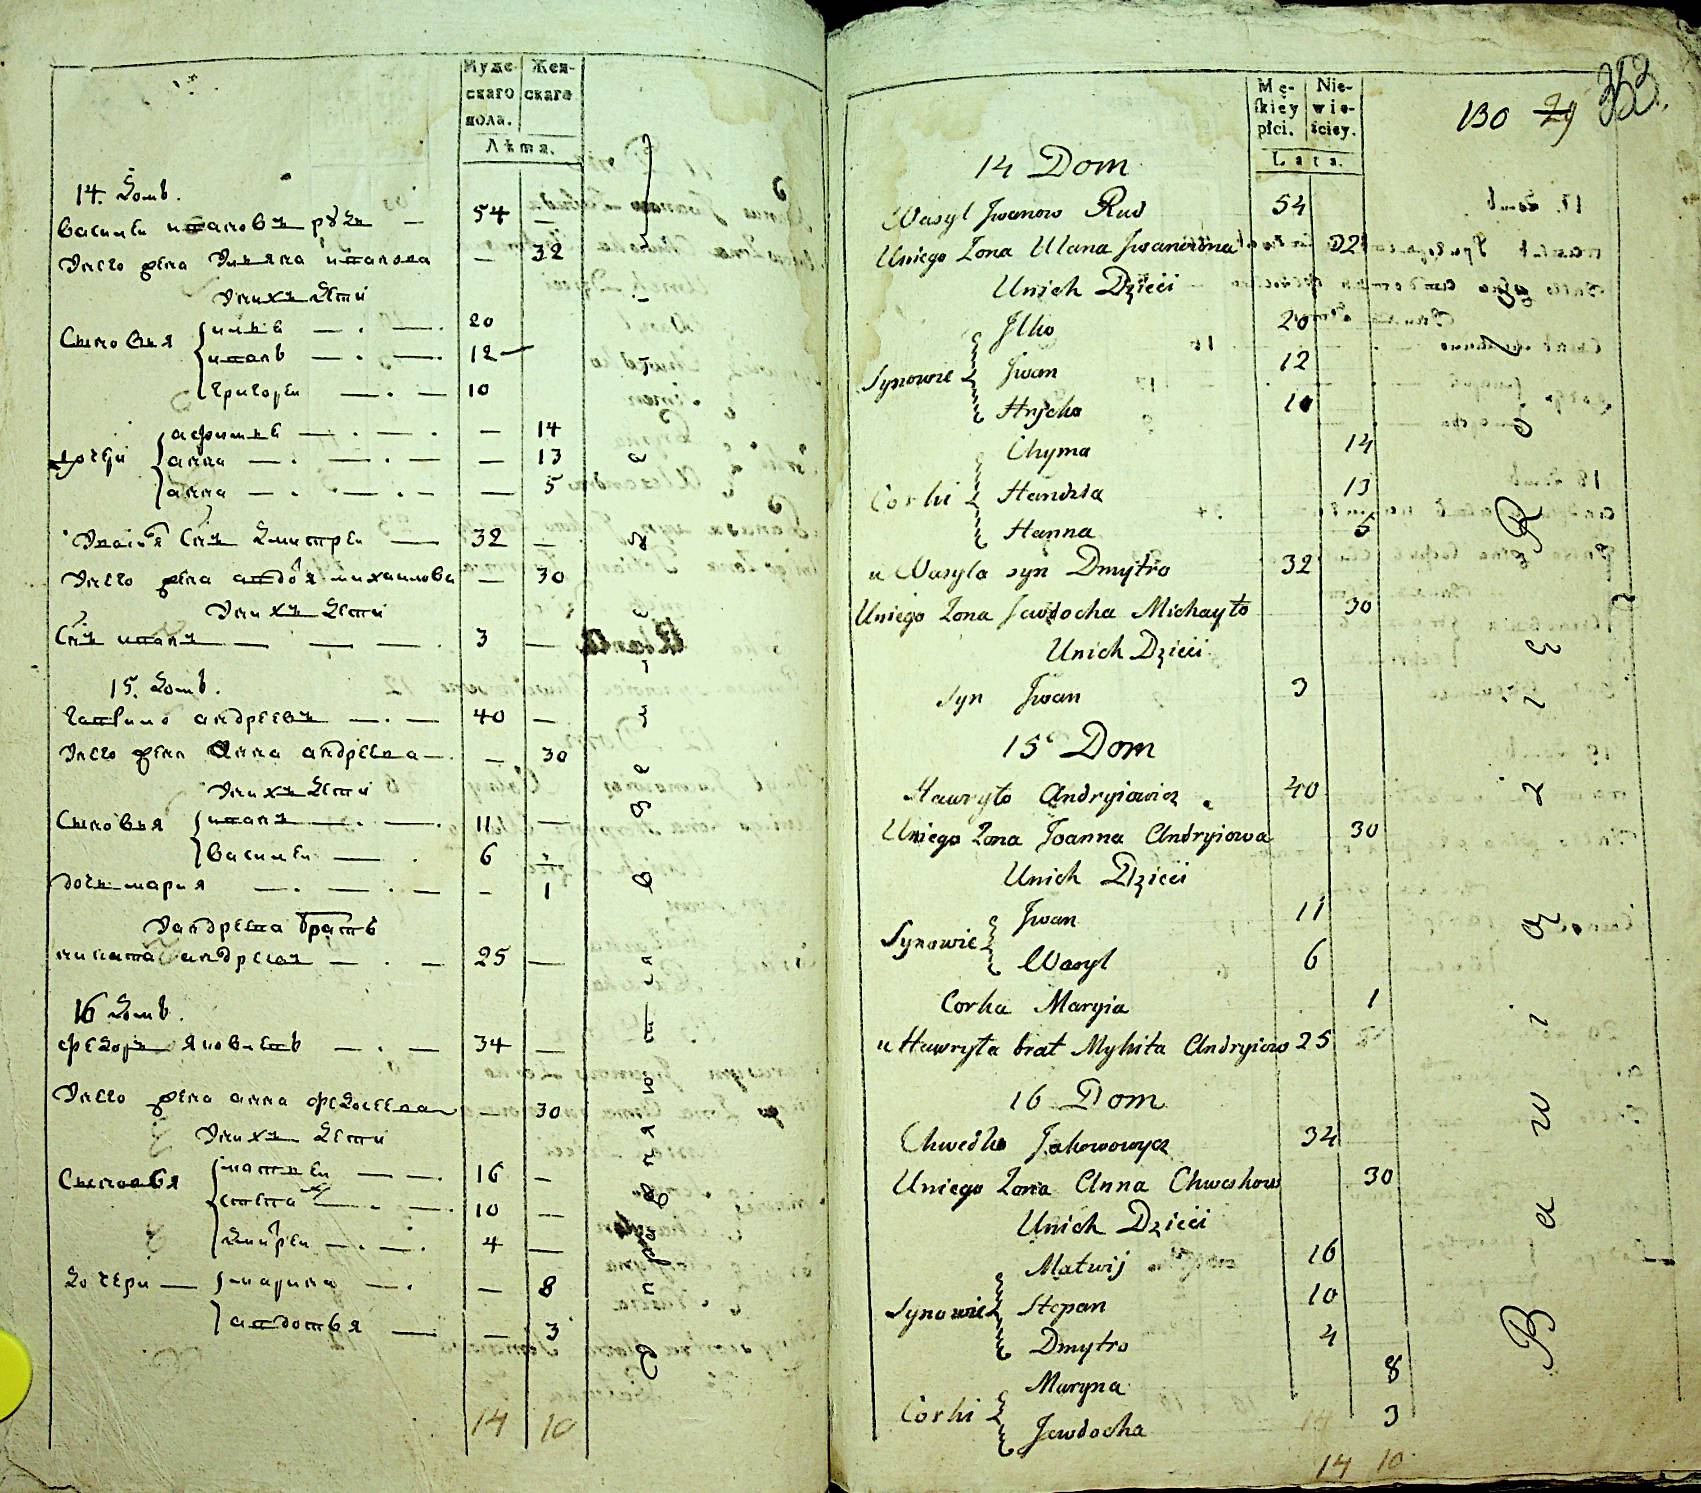 Муже-
скаго
пола.
Жен-
скаго
Лѣта.
14. Домъ.
Василий ивановъ рудъ — 54 —
Унего жена Уляна иванова — 32
Унихъ дети
Сыновья илько — . — . 20
иванъ — . — . 12
григорей — . — 10
дочери афимья — . — . — 14
анна — . — . — — 13
анна — . — . — — 5
Сынъ Дмитрей — 32 —
Унего жена авдотя михайлова — 30
Унихъ дети
Сынъ иванъ — — — 3 —
15. Домъ.
гаврило андреевъ — . — 40 —
Унего жена Анна андреева — . — 30
Унихъ дети
Сыновья иванъ — . — . 11 —
василей — . 6
дочь мария — . — . — — 1
Уандреева братъ
никита андреевъ — . — 25 —
16 Домъ.
федоръ яковлевъ — . — 34 —
Унего жена анна федосеева — 30
Унихъ дети
Сыновья матвей — — . 16 —
степанъ — . — . 10 —
дмитрей — . — . 4 —
дочери — марина — . — 8
авдотья — — 3
14 10
Mę-
skiey
płci.
Nie-
wie-
ściey.
Lata.
130 29 353.
14 Dom
Wasyl Jwanow Rud 54
Uniego Zona Ulana Jwanowna 32
Unich Dzieci
Synowie Jlko 20
Jwan 12
Hryćko 10
Corki Chyma 14
Handzia 13
Hanna 5
u Wasyla syn Dmytro 32
Uniego Zona Jewdocha Michayło 30
Unich Dzieci
syn Jwan 3
15 Dom
Hawryło Andryiowicz . 40
Uniego Zona Joanna Andryiowa 30
Unich Dzieci
Synowie Jwan 11
Wasyl 6
Corka Maryia 1
u Hawryła brat Mykita Andryiow 25
16 Dom
Chwedko Jakowowycz 34
Uniego Zona Anna Chweskow 30
Unich Dzieci
Synowie Matwij 16
Stepan 10
Dmytro 4
Corki Maryna 8
Jewdocha 3
14 10